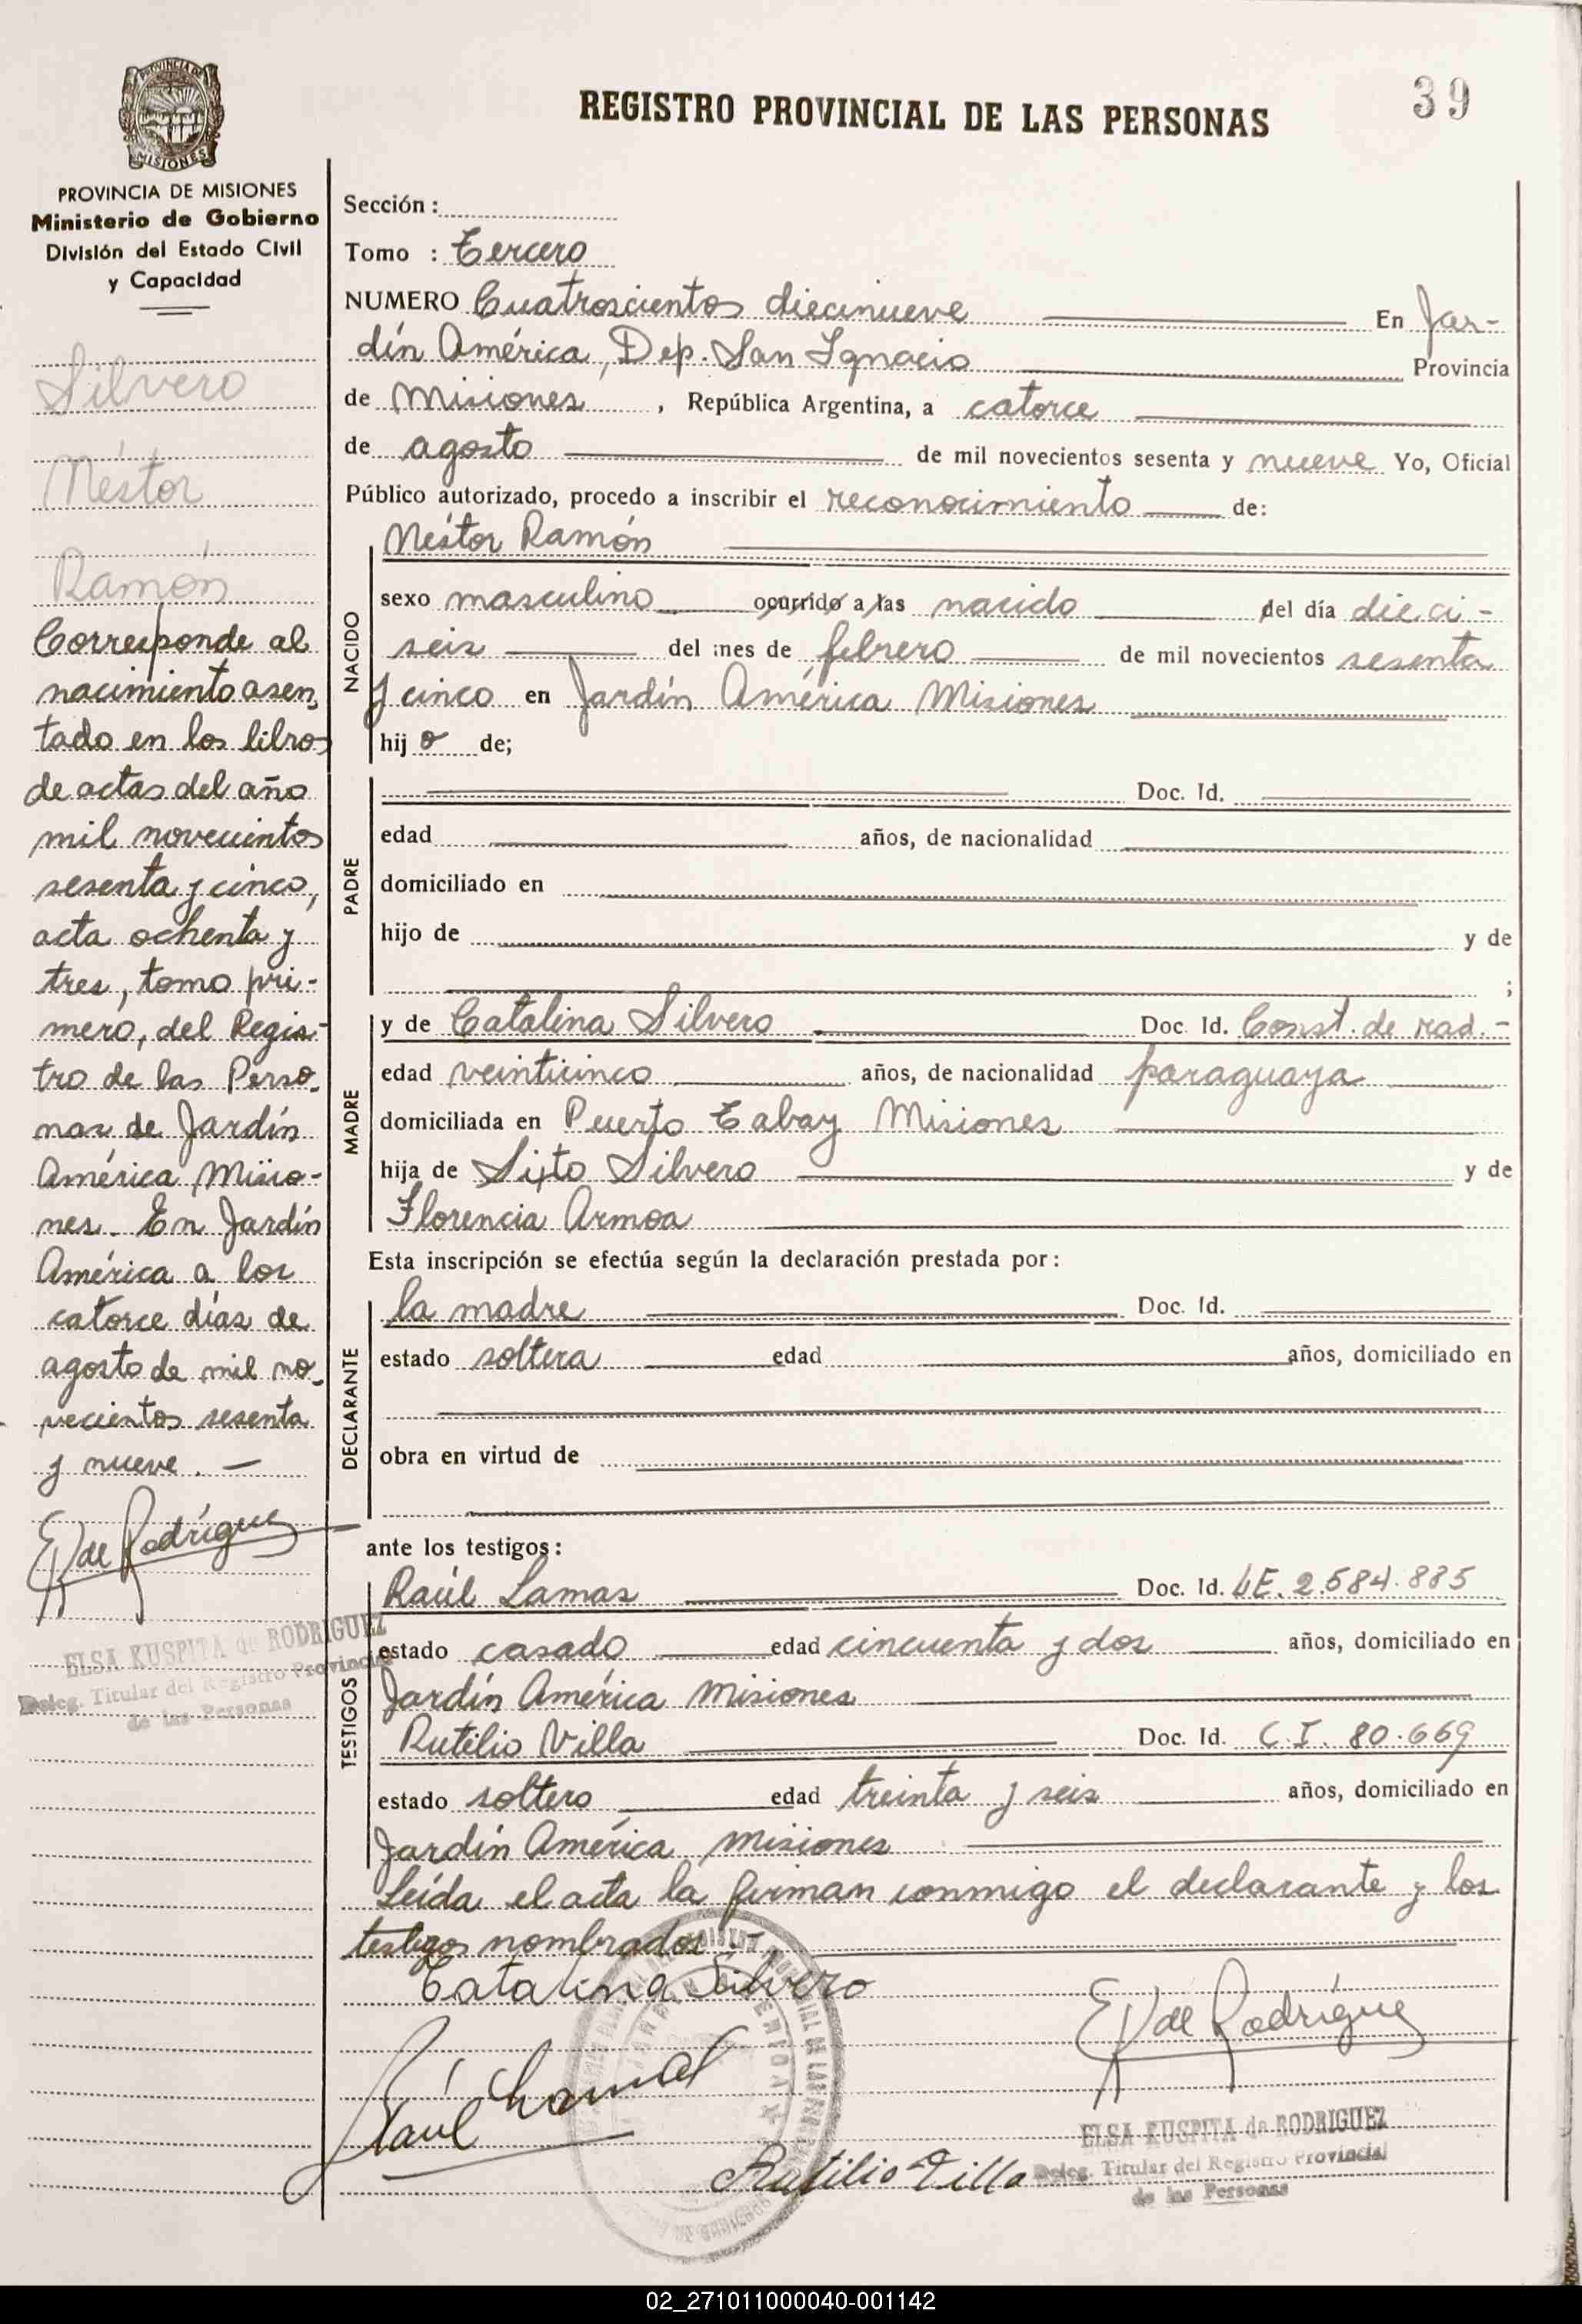 39
REGISTRO PROVINCIAL DE LAS PERSONAS
PROVINCIA DE
MISIONES
PROVINCIA DE MISIONES
Ministerio de Gobierno
División del Estado Civil
y Capacidad
Silvero
Néstor
Ramón
Corresponde al
nacimiento asen
tado en los libros
de actas del año
mil novecientos
sesenta y cinco,
acta ochenta y
tres, tomo pri-
mero, del Regis-
tro de las Perso-
nas de Jardín
América Misio-
nes. En Jardín
América a los
catorce días de
agosto de mil no-
vecientos sesenta
y nueve. —
E K de Rodríguez
ELSA KUSPITA de RODRIGUEZ
Deleg. Titular del Registro Provincial
de las Personas
Sección :
Tomo : Tercero
NUMERO Cuatroscientos diecinueve En Jar-
dín América, Dep. San Ignacio Provincia
de Misiones , República Argentina, a catorce
de agosto de mil novecientos sesenta y nueve Yo, Oficial
Público autorizado, procedo a inscribir el reconocimiento de:
NACIDO
Néstor Ramón
sexo masculino ocurrido a las nacido del día dieci-
seis del mes de febrero de mil novecientos sesenta
y cinco en Jardín América Misiones
hij o de;
PADRE
Doc. Id.
edad años, de nacionalidad
domiciliado en
hijo de y de
;
MADRE
y de Catalina Silvero Doc. Id. Const. de rad.-
edad veinticinco años, de nacionalidad paraguaya
domiciliada en Puerto Tabay Misiones
hija de Sixto Silvero y de
Florencia Armoa
Esta inscripción se efectúa según la declaración prestada por :
DECLARANTE
la madre Doc. Id.
estado soltera edad años, domiciliado en
obra en virtud de
ante los testigos :
TESTIGOS
Raúl Lamas Doc. Id. L E. 2.584.885
estado casado edad cincuenta y dos años, domiciliado en
Jardín América Misiones
Rutilio Villa Doc. Id. C. I. 80.669
estado soltero edad treinta y seis años, domiciliado en
Jardín América Misiones
Leída el acta la firman conmigo el declarante y los
testigos nombrados.-
Catalina Silvero
E K de Rodríguez
Raul
ELSA KUSPITA de RODRIGUEZ
Rutilio Villa
Deleg. Titular del Registro Provincial
de las Personas
02_271011000040-001142